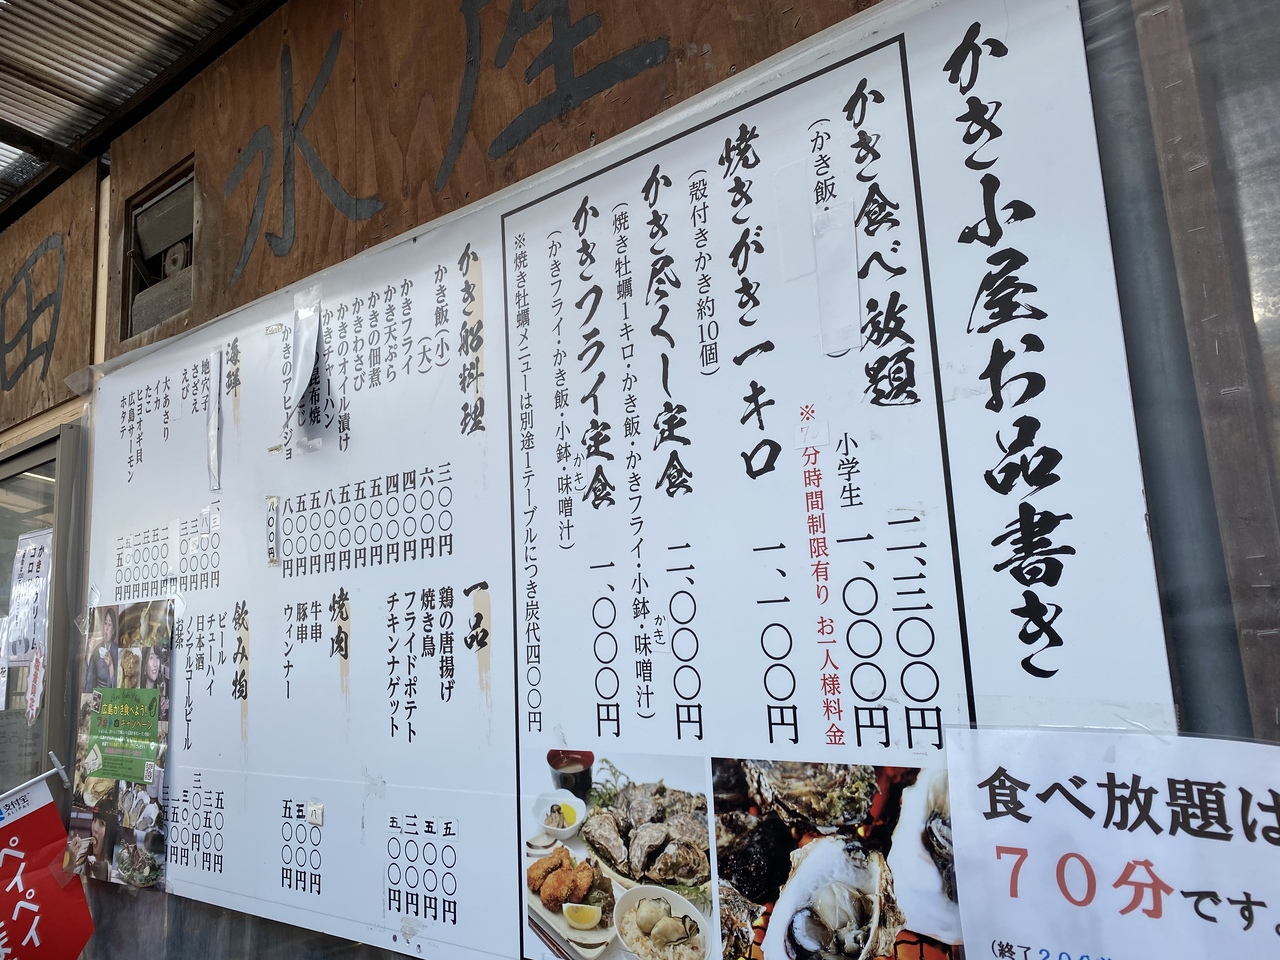 水産
田
かき小屋お品書き
かき食べ放題 二、三〇〇〇円
(かき飯・
小学生 一、〇〇〇円
※7 分時間制限有り お一人様料金
焼きがき一キロ 一、一〇〇円
(殻付きかき約10個)
かき尽くし定食 二、〇〇〇円
(焼き牡蠣1キロ・かき飯・かきフライ・小鉢・味噌汁)
かき
かきフライ定食 一、〇〇〇円
(かきフライ・かき飯・小鉢・味噌汁)
かき
※焼き牡蠣メニューは別途1テーブルにつき炭代四〇〇円
かき船料理
かき飯(小) 三〇〇円
(大) 六〇〇円
かきフライ 四〇〇円
かき天ぷら 四〇〇円
かきの佃煮 五〇〇円
かきわさび 五〇〇円
かきのオイル漬け 五〇〇円
かきチャーハン 八〇〇円
昆布焼 五〇〇円
五〇〇円
かきのアヒージョ 八〇〇円
八〇〇円
海鮮
地穴子
さざえ
えび
大あさり
イカ
たこ
ヒヨオギ貝
広島サーモン
ホタテ
一品
鶏の唐揚げ 五〇〇円
焼き鳥 五〇〇円
フライドポテト 三〇〇円
チキンナゲット 五〇〇円
焼肉
牛串 八〇〇円
豚串 五〇〇円
ウィンナー 五〇〇円
飲み物
ビール 五〇〇円
チューハイ 三五〇円
日本酒 三〇〇円〜
ノンアルコールビール
お茶
広島かき食べよう!
キャンペーン
支付宝
ペイペイ
食べ放題は
70分です。
(終了20分